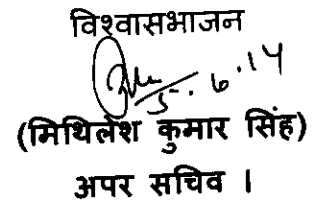 विश्वासभाजन
5.6.14
(मिथिलेश कुमार सिंह)
अपर सचिव ।